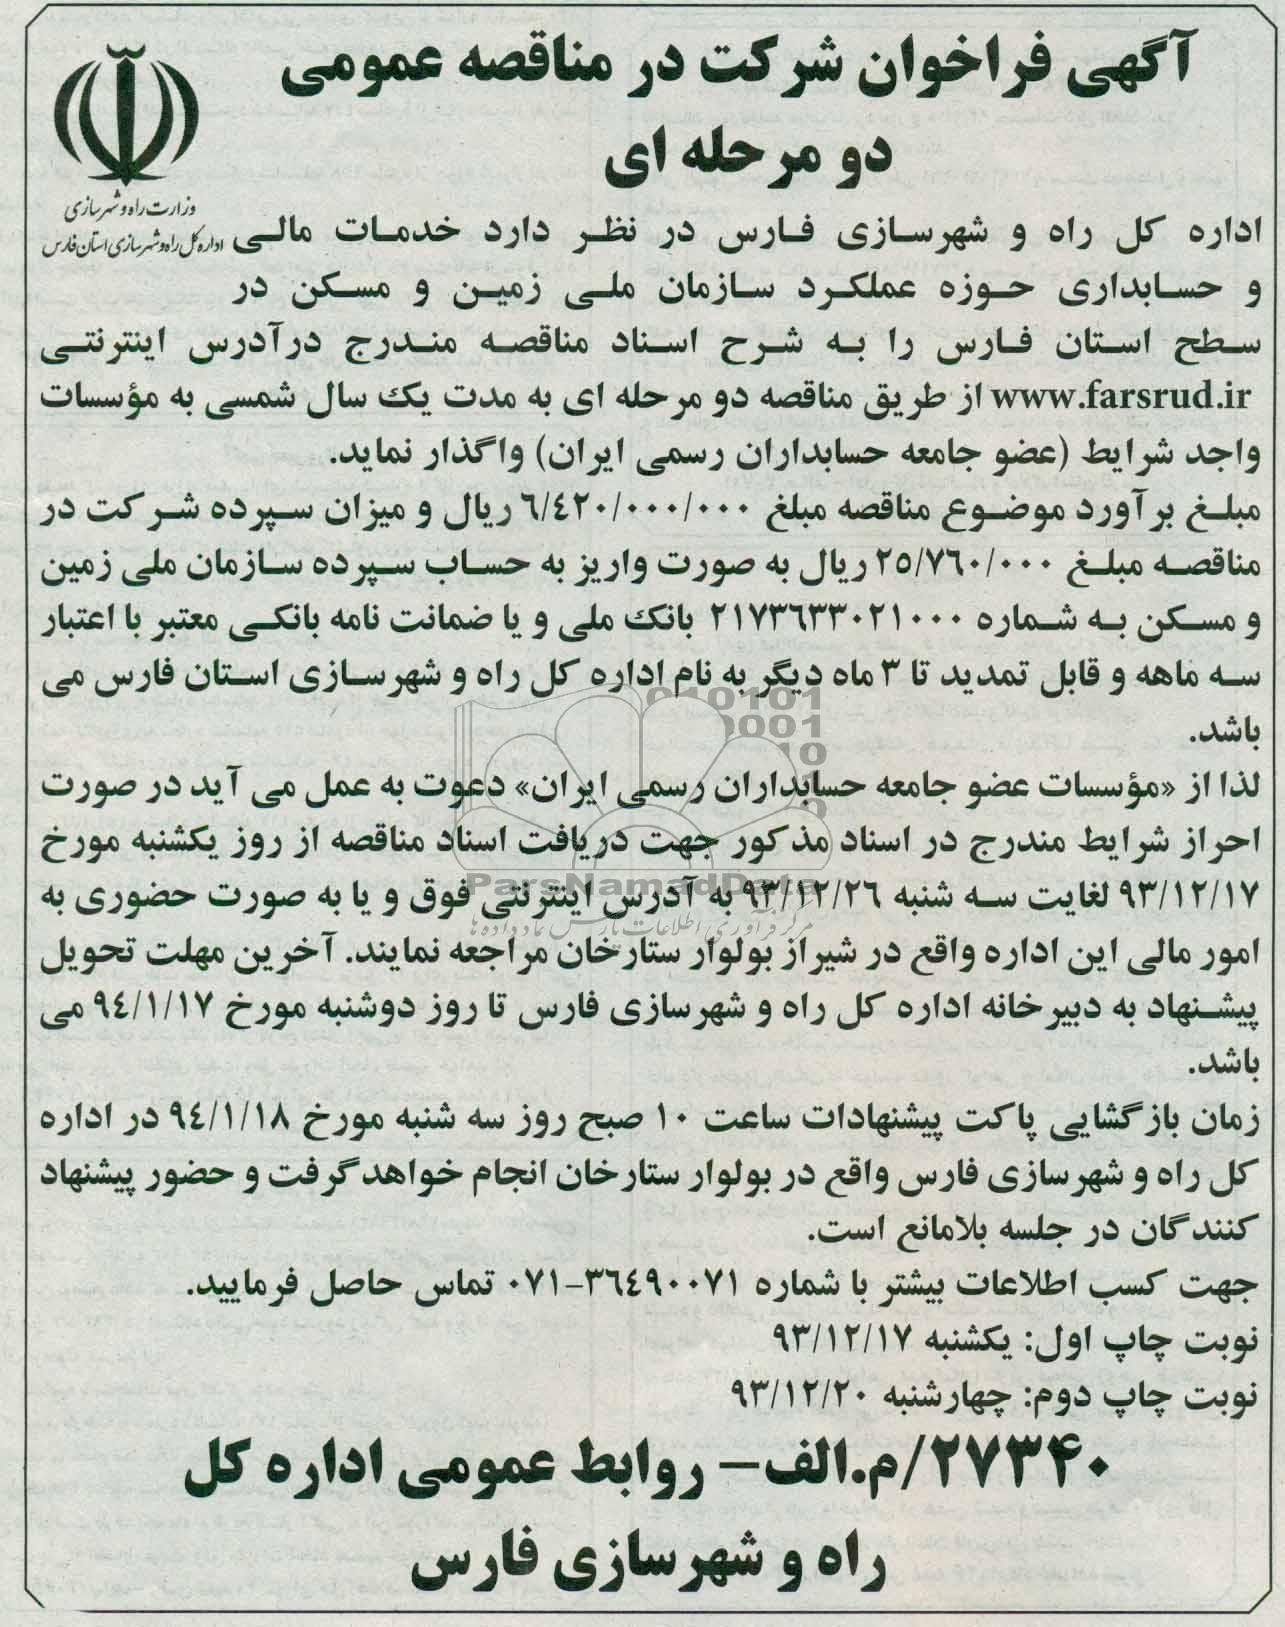 آگهی فراخوان شرکت در مناقصه عمومی
دو مرحله ای
وزارت راه و شهرسازی
اداره کل راه و شهرسازی استان فارس
اداره کل راه و شهرسازی فارس در نظر دارد خدمات مالی
و حسابداری حوزه عملکرد سازمان ملی زمین و مسکن در
سطح استان فارس را به شرح اسناد مناقصه مندرج درآدرس اینترنتی
www.farsrud.ir از طریق مناقصه دو مرحله ای به مدت یک سال شمسی به مؤسسات
واجد شرایط (عضو جامعه حسابداران رسمی ایران) واگذار نماید.
مبلغ برآورد موضوع مناقصه مبلغ ۶/۴۲۰/۰۰۰/۰۰۰ ریال و میزان سپرده شرکت در
مناقصه مبلغ ۲۵/۷۶۰/۰۰۰ ریال به صورت واریز به حساب سپرده سازمان ملی زمین
و مسکن به شماره ۲۱۷۳۶۳۳۰۲۱۰۰۰ بانک ملی و یا ضمانت نامه بانکی معتبر با اعتبار
سه ماهه و قابل تمدید تا ۳ ماه دیگر به نام اداره کل راه و شهرسازی استان فارس می
باشد.
لذا از «مؤسسات عضو جامعه حسابداران رسمی ایران» دعوت به عمل می آید در صورت
احراز شرایط مندرج در اسناد مذکور جهت دریافت اسناد مناقصه از روز یکشنبه مورخ
۹۳/۱۲/۱۷ لغایت سه شنبه ۹۳/۱۲/۲۶ به آدرس اینترنتی فوق و یا به صورت حضوری به
امور مالی این اداره واقع در شیراز بولوار ستارخان مراجعه نمایند. آخرین مهلت تحویل
پیشنهاد به دبیرخانه اداره کل راه و شهرسازی فارس تا روز دوشنبه مورخ ۹۴/۱/۱۷ می
باشد.
زمان بازگشایی پاکت پیشنهادات ساعت ۱۰ صبح روز سه شنبه مورخ ۹۴/۱/۱۸ در اداره
کل راه و شهرسازی فارس واقع در بولوار ستارخان انجام خواهدگرفت و حضور پیشنهاد
کنندگان در جلسه بلامانع است.
جهت کسب اطلاعات بیشتر با شماره ۳۶۴۹۰۰۷۱-۰۷۱ تماس حاصل فرمایید.
نوبت چاپ اول: یکشنبه ۹۳/۱۲/۱۷
نوبت چاپ دوم: چهارشنبه ۹۳/۱۲/۲۰
۲۷۳۴۰/م.الف– روابط عمومی اداره کل
راه و شهرسازی فارس
ParsNamadData
مرکز فرآوری اطلاعات پارس نماد داده ها